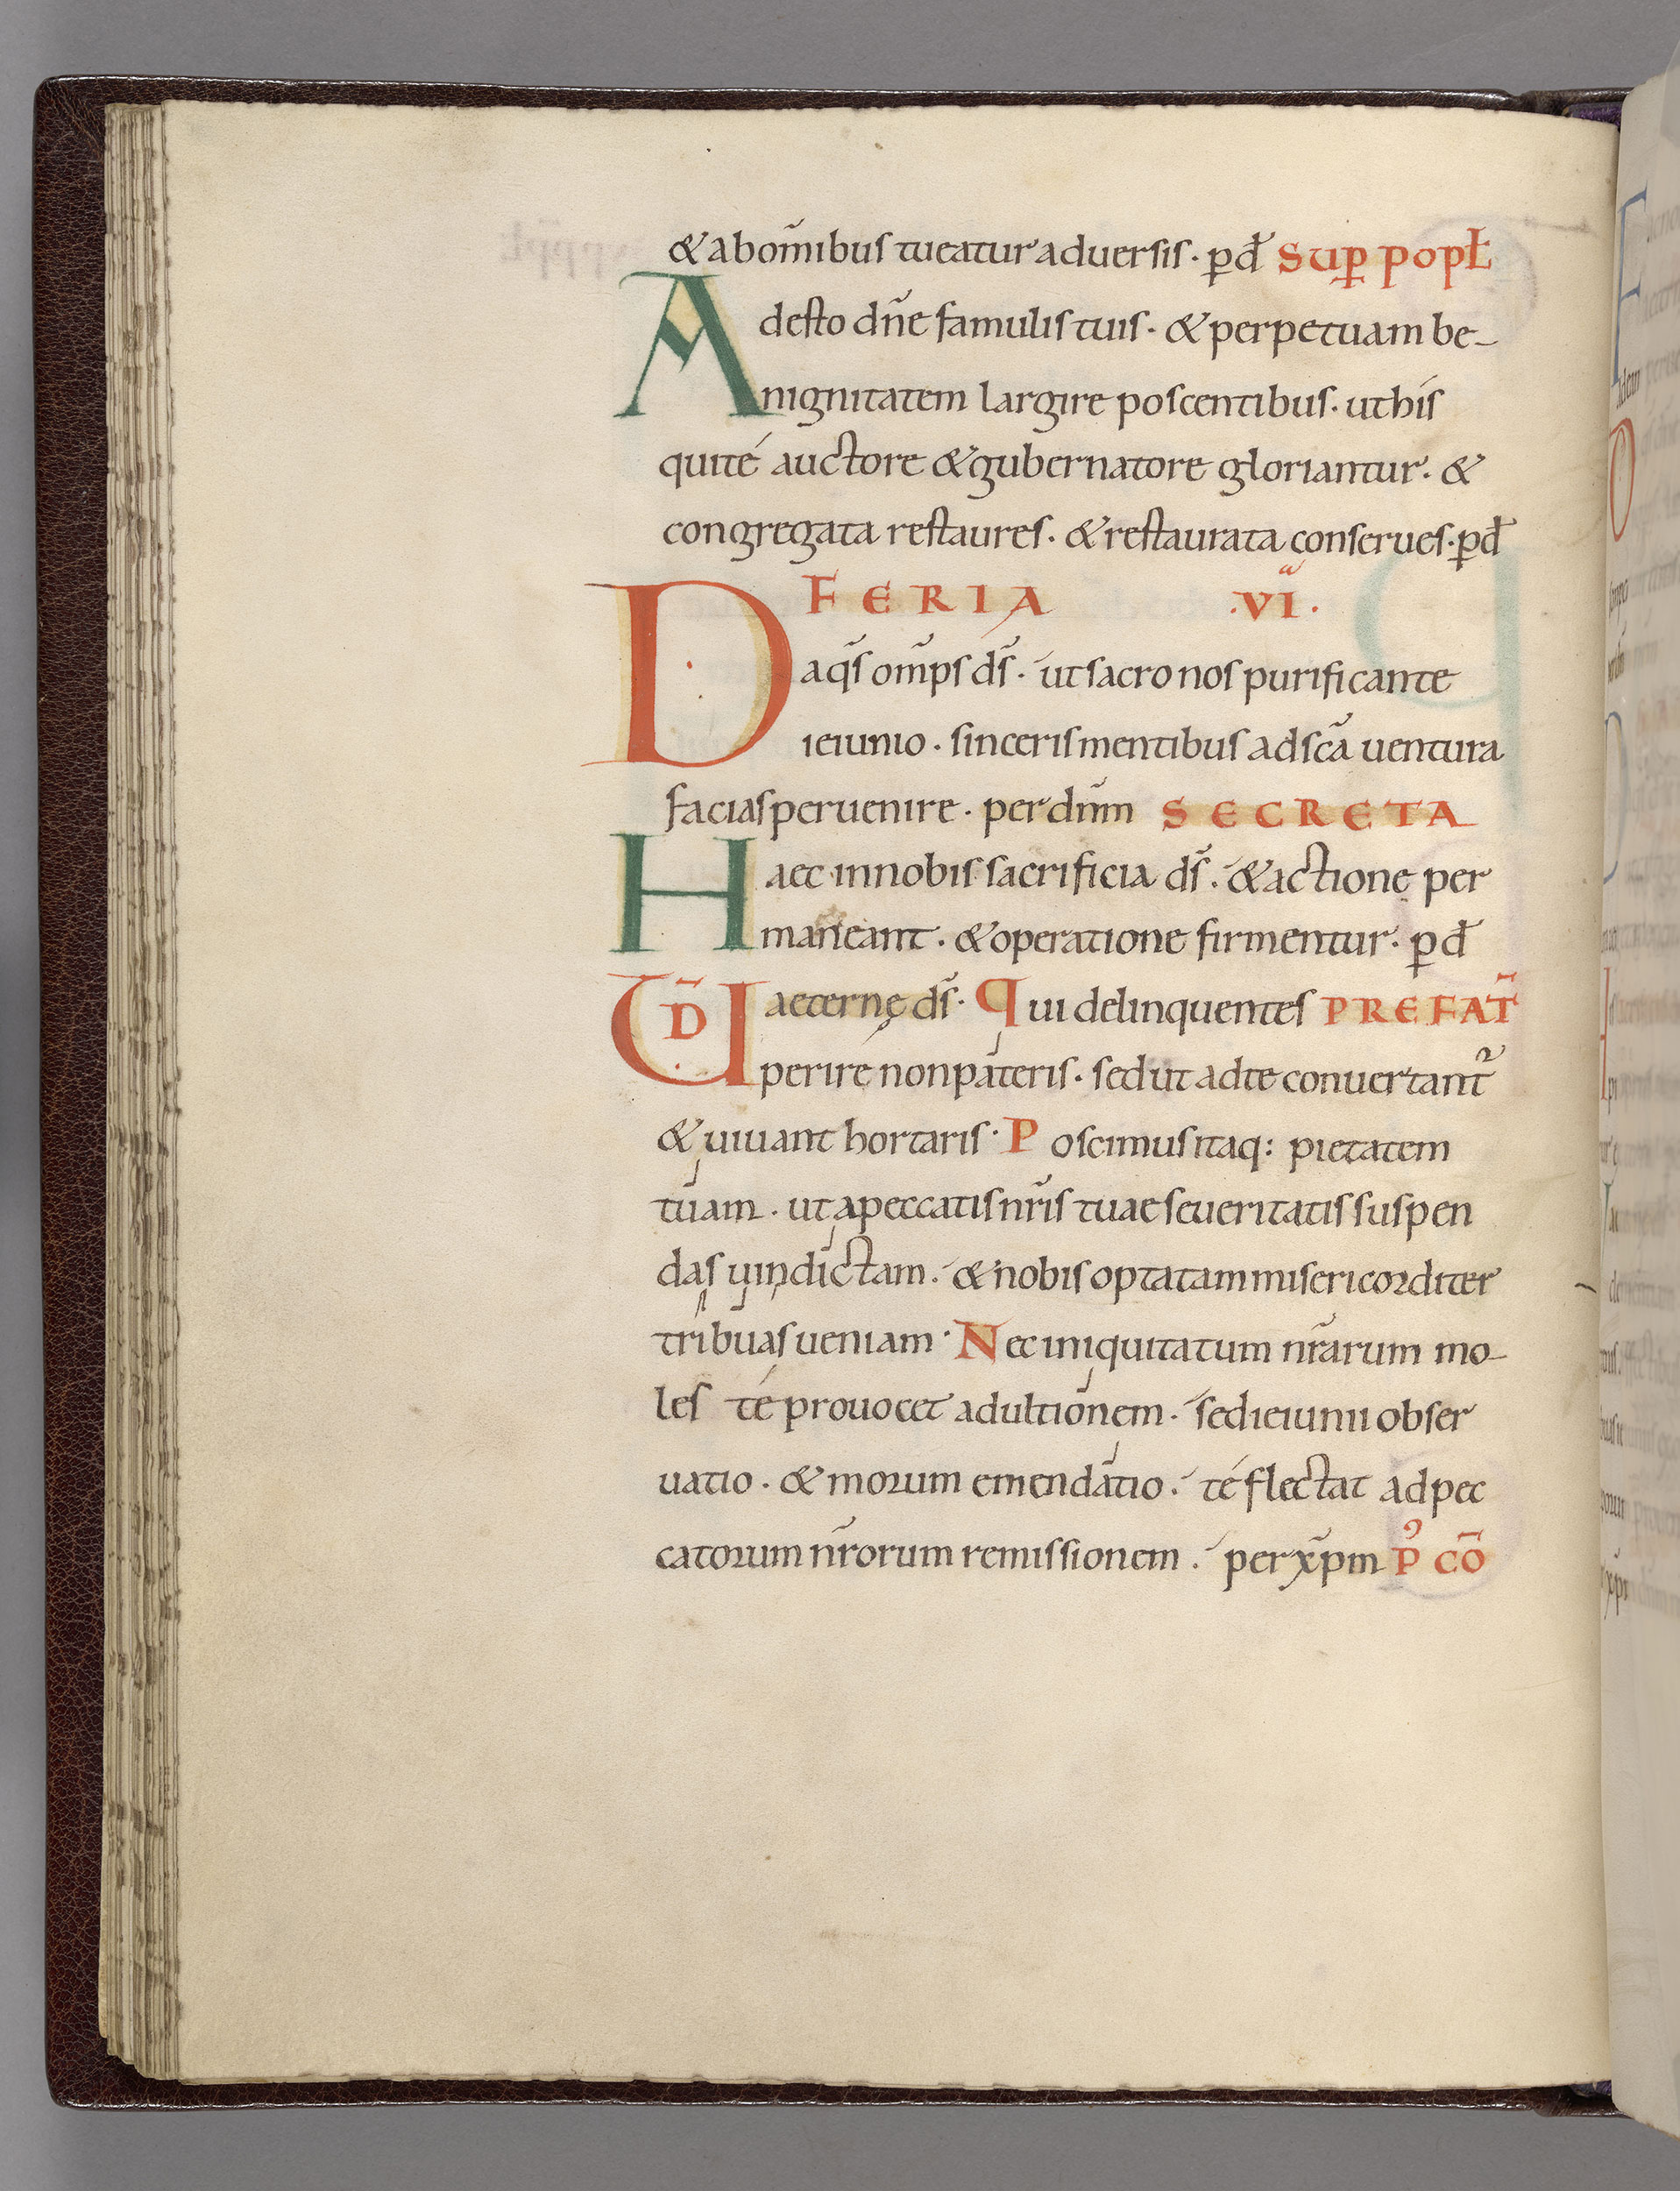 & ab om̄ibus tueatur aduersis · p̲ d̄ SUP̲ POPŁ
Adesto dn̄e famulis tuis · & perpetuam be-
nignitatem largire poscentibus · ut his
qui té auctore & gubernatore gloriantur · &
congregata restaures · & restaurata conserues · p̲ d̄
FERIA ·VI·
Da q̄s om̄ps ds̄ · ut sacro nos purificante
ieiunio · sinceris mentibus ad scā uentura
facias peruenire · per dn̄m SECRETA
Haec in nobis sacrificia ds̄ · & actione per
maneant · & operatione firmentur · p̲ d̄
UD̄ aeternę ds̄ · Qui delinquentes PREFAT̄
perire non pateris · sed ut ad te conuertant᷑
& uiuant hortaris · Poscimus itaq: pietatem
tuam · ut a peccatis nr̄is tuae seueritatis suspen
das uindictam · & nobis optatam misericorditer
tribuas ueniam · Nec iniquitatum nr̄arum mo-
les té prouocet ad ultionem · sed ieiunii obser
uatio · & morum emendatio · té flectat ad pec
catorum nr̄orum remissionem · per xp̄m P᾿ CŌ